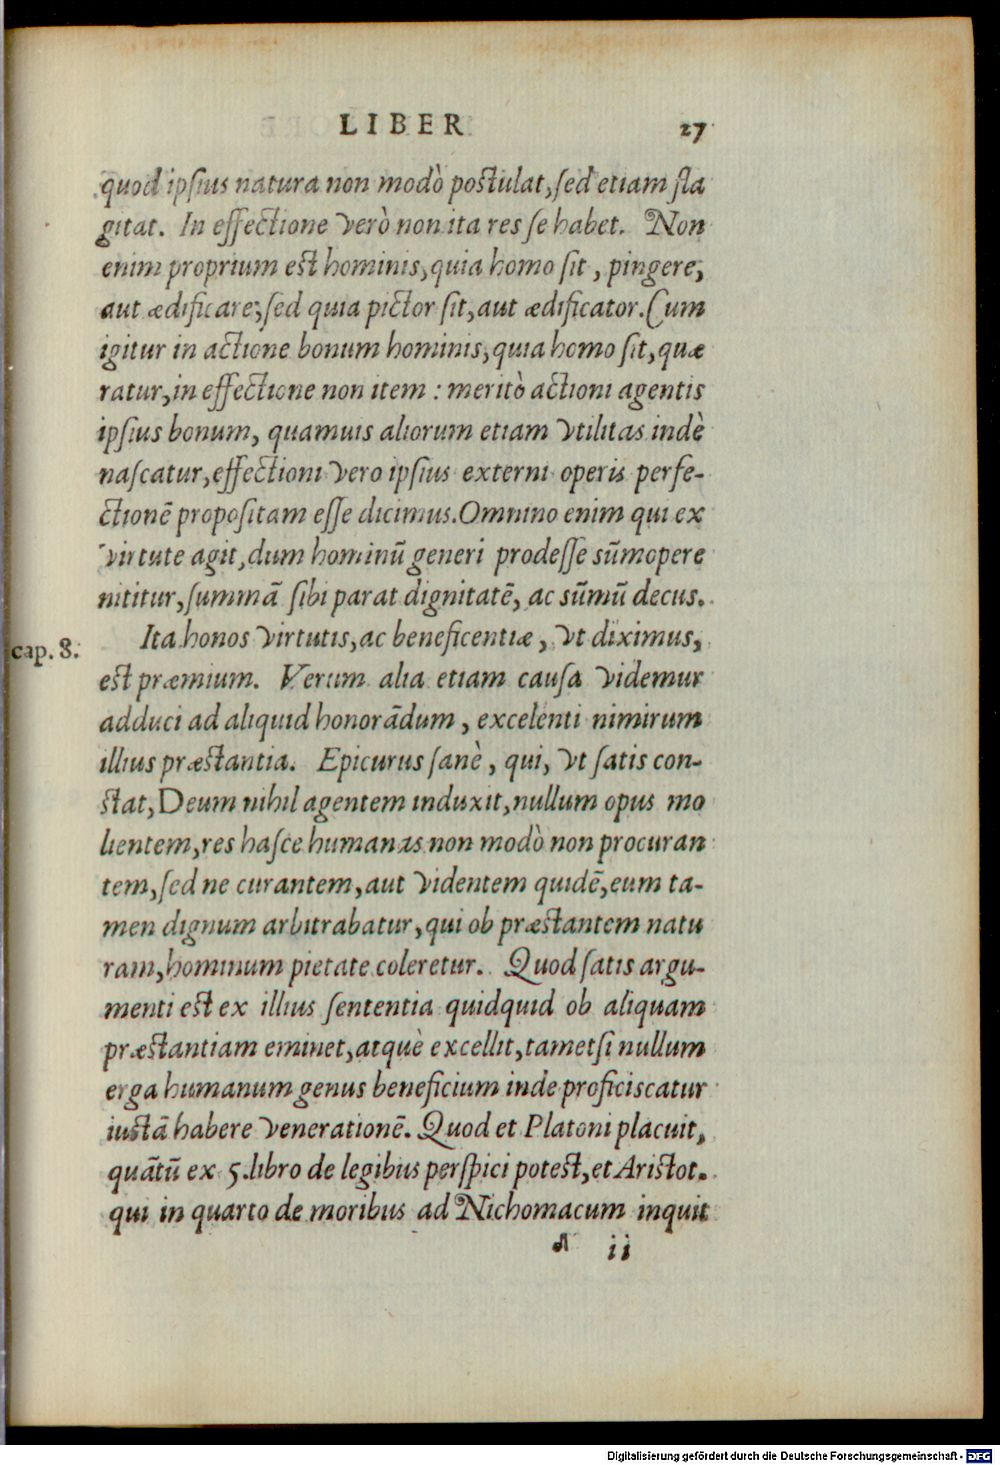 LIBER 27
quod ipsius natura non modò postulat, sed etiam fla
gitat. In effectione verò non ita res se habet. Non
enim proprium est hominis, quia homo sit, pingere,
aut ædificare; sed quia pictor sit, aut ædificator. Cum
igitur in actione bonum hominis, quia homo sit, quæ
ratur, in effectione non item : meritò actioni agentis
ipsius bonum, quamuis aliorum etiam vtilitas indè
nascatur, effectioni vero ipsius externi operis perfe-
ctionē propositam esse dicimus. Omnino enim qui ex
virtute agit, dum hominū generi prodesse sūmopere
nititur, summā sibi parat dignitatē, ac sūmū decus.
cap. 8. Ita honos virtutis, ac beneficentiæ, vt diximus,
est præmium. Verum alia etiam causa videmur
adduci ad aliquid honorādum, excelenti nimirum
illius præstantia. Epicurus sanè, qui, vt satis con-
stat, Deum nihil agentem induxit, nullum opus mo
lientem, res hasce humanas non modò non procuran
tem, sed ne curantem, aut videntem quidē, eum ta-
men dignum arbitrabatur, qui ob præstantem natu
ram, hominum pietate coleretur. Quod satis argu-
menti est ex illius sententia quidquid ob aliquam
præstantiam eminet, atquè excellit, tametsi nullum
erga humanum genus beneficium inde proficiscatur
iustā habere venerationē. Quod et Platoni placuit,
quātū ex 5. libro de legibus perspici potest, et Aristot.
qui in quarto de moribus ad Nichomacum inquit
ii
Digitalisierung gefördert durch die Deutsche Forschungsgemeinschaft - DFG